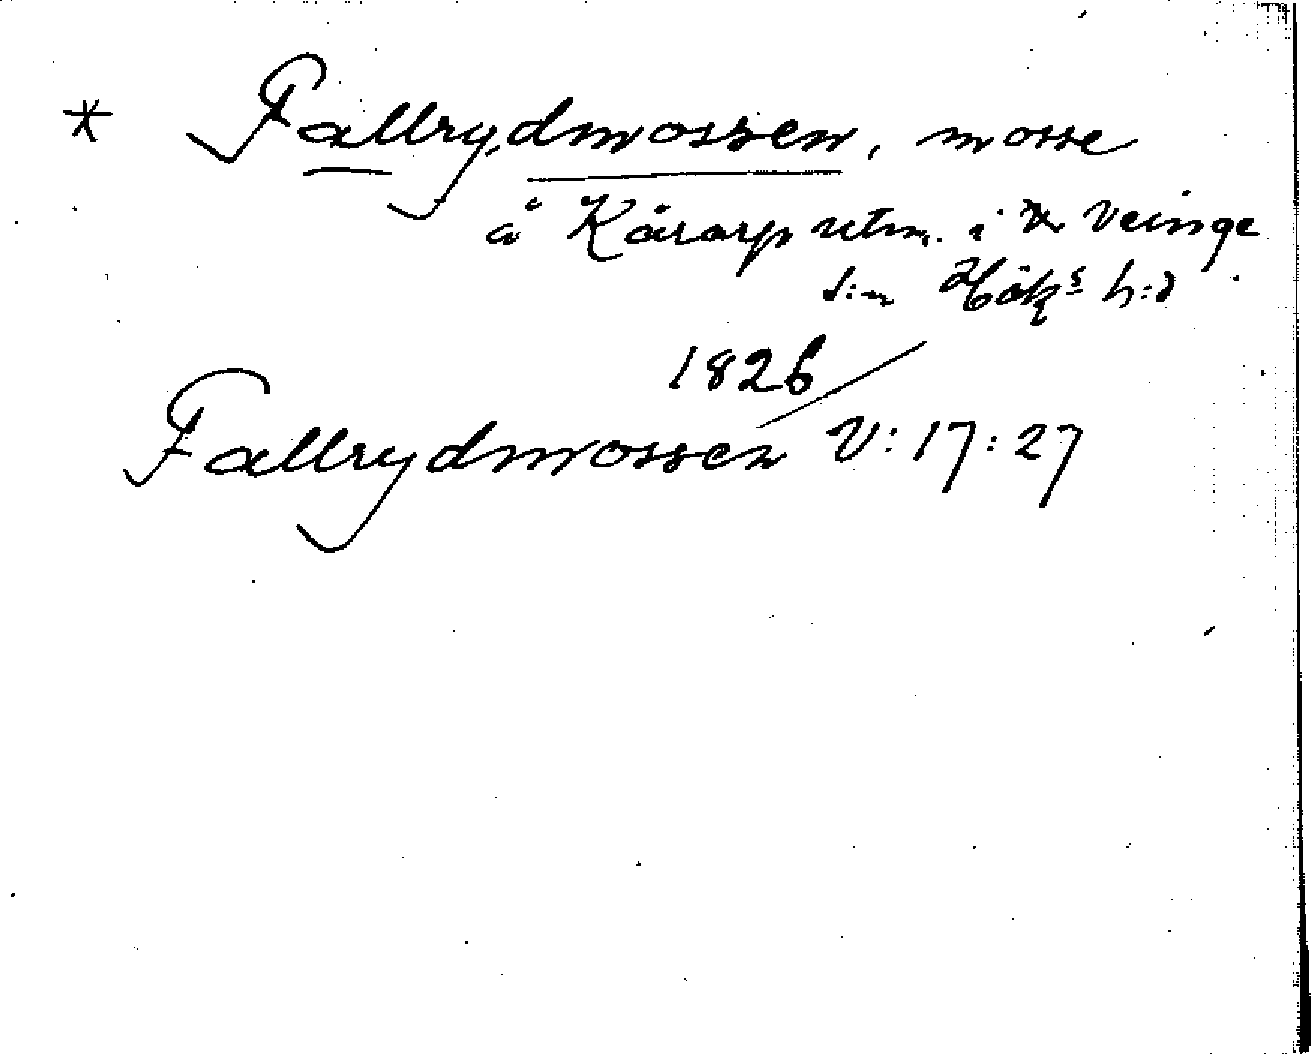 * Fallrydmossen, mosse
å Kårarp utm. i Veinge
s:n Höks h:d
1826
Fallrydmossen V:17:27